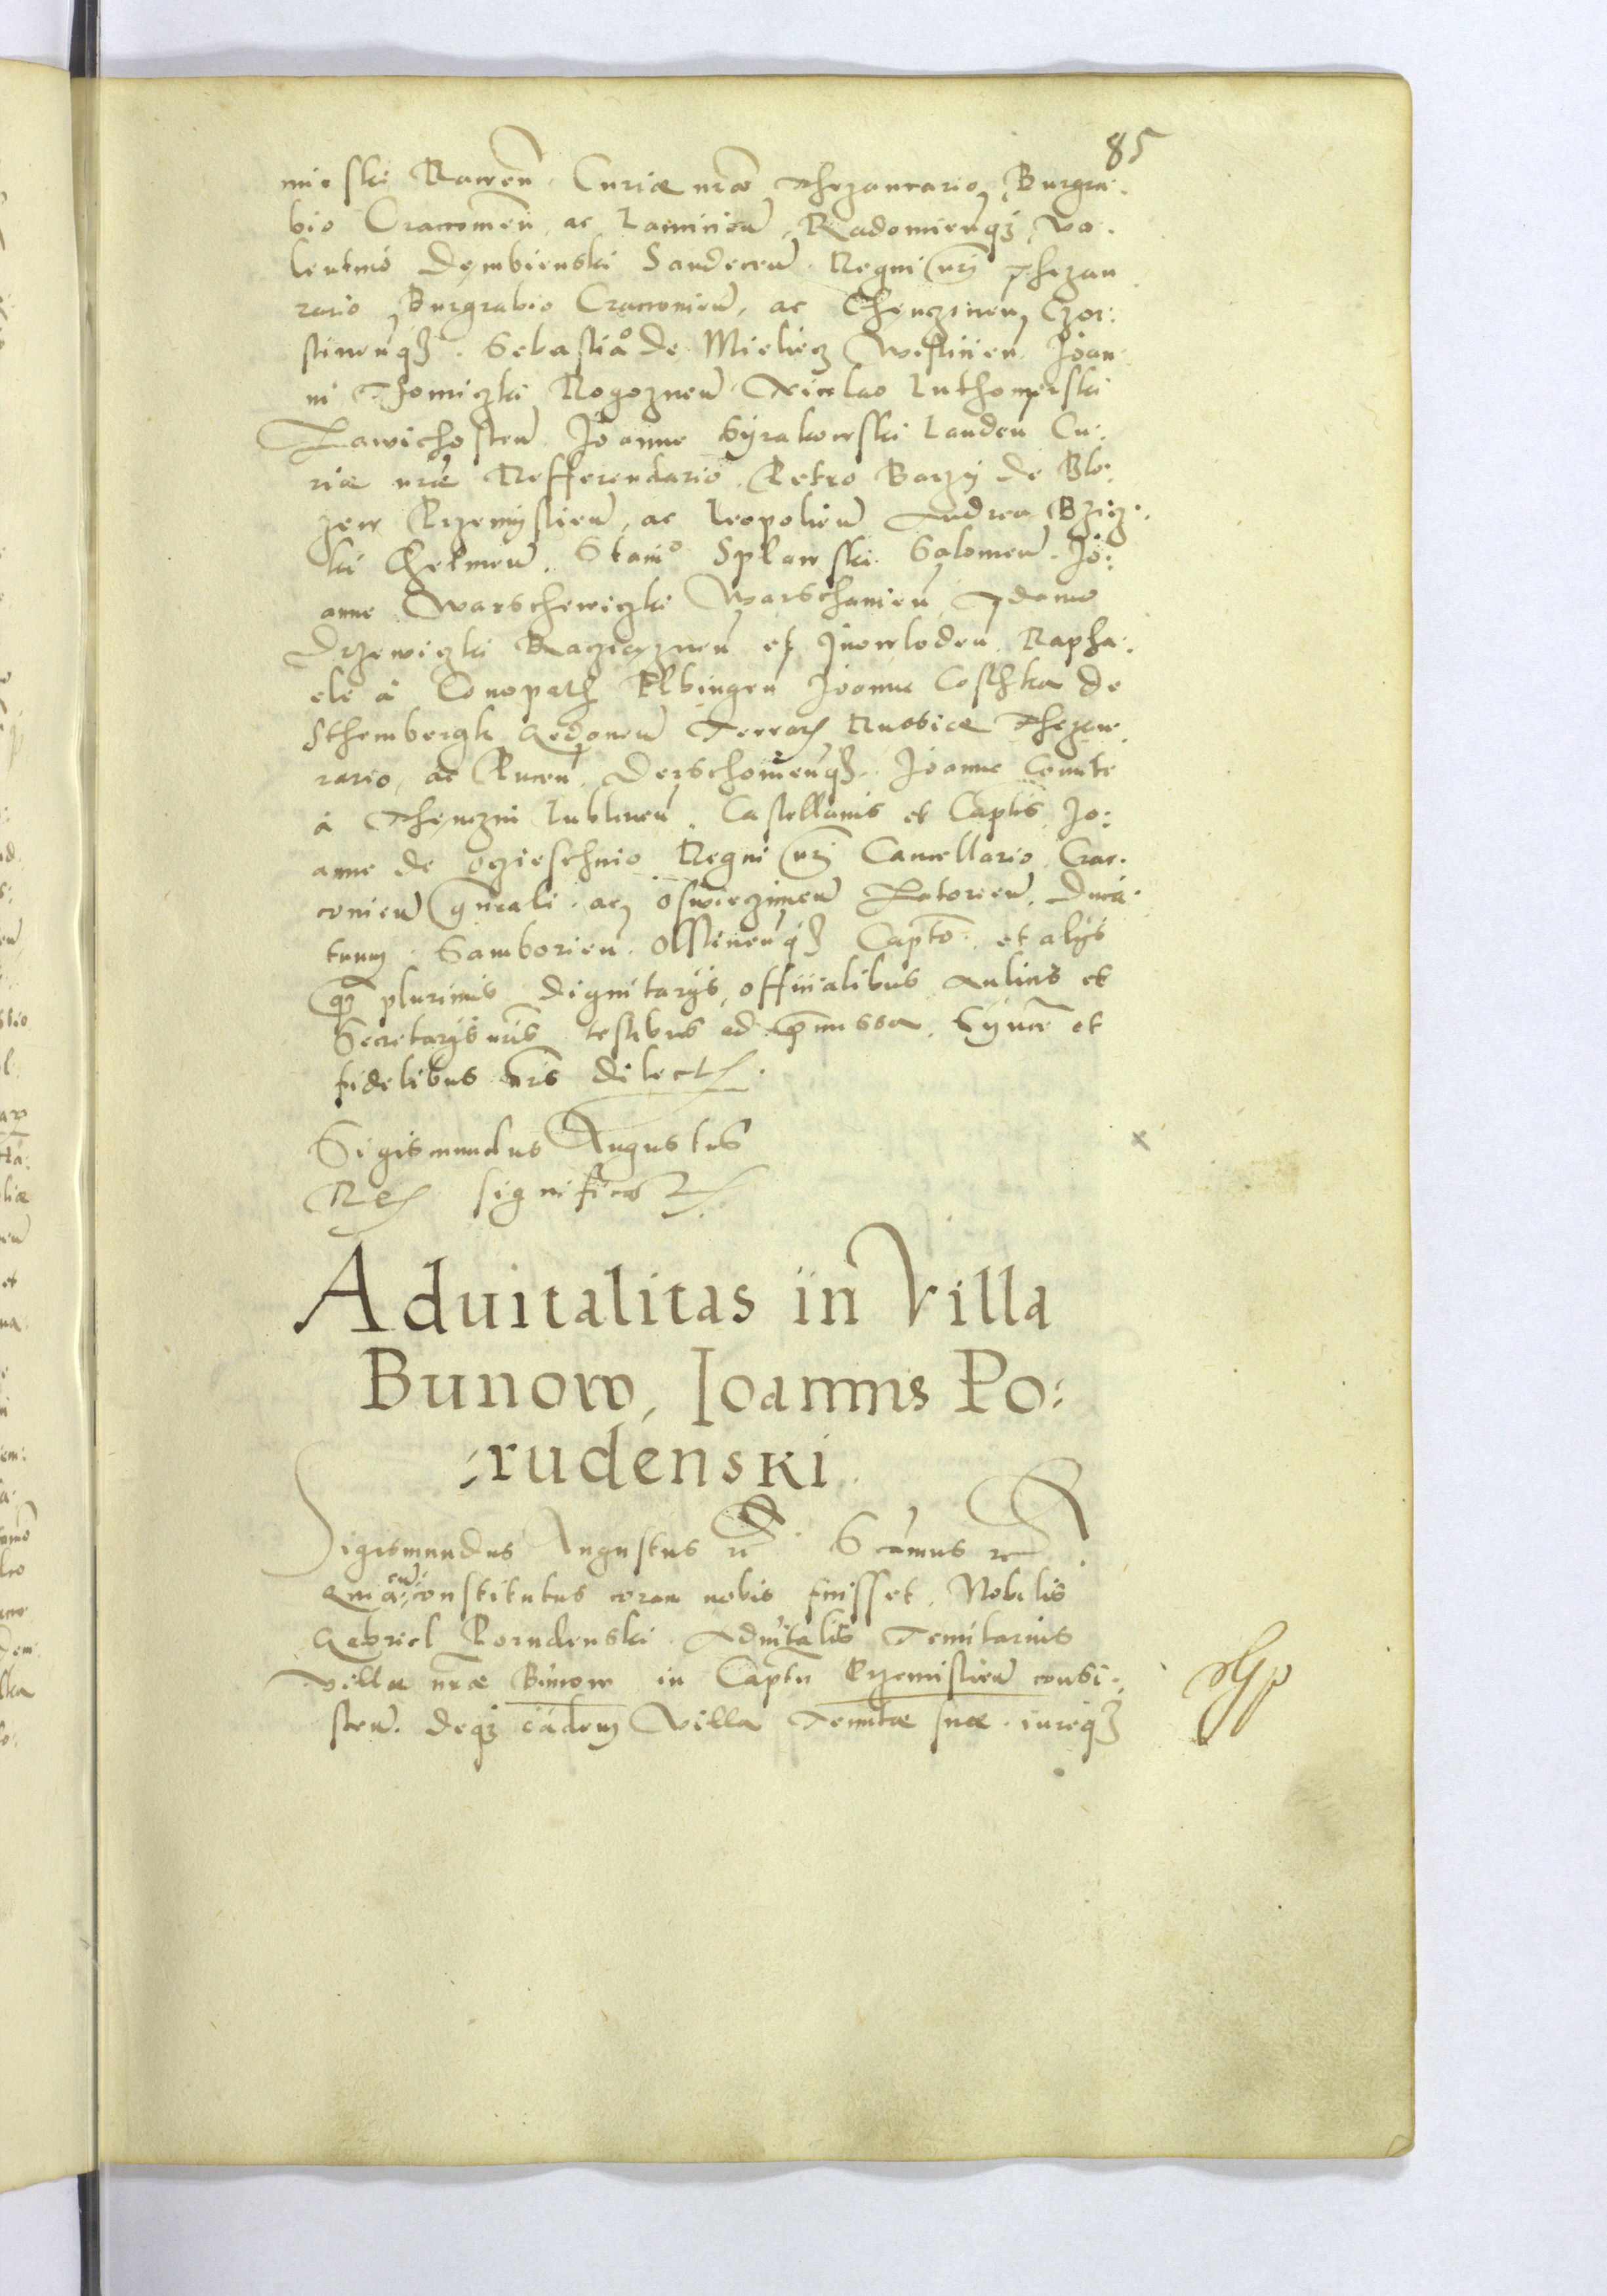 85
mieski Rawen̄ Curiæ nr̄æ Thezaurario, Burgra:
bio Cracovien̄ ac Lanciciēn, Radomien̄qꝫ, Va:
lentino Dembienski Sandecen̄ Regni nr̄i Thezau
rario Burgrabio Cracovien̄, ac Chenczinen, Czor:
stinen̄qꝫ. Sebastiaº de Mieliecz Wislicien̄ Joan
ni Thomiczki Rogoznen̄ Nicolao Luthomirski
Zawichosten̄ Joanne Syrakowski Landen̄ Cu:
riæ nr̄æ Refferendario, Petro Barzy de Blo:
zew Przemyslien̄, ac Leopolien̄ Andrea Bzicz:
ki Chelmen̄. Staniº Splawski Salomen̄. Jo:
anne Warschewiczki Warschavien̄, Adamo
Drzewiczki Racziąznen̄ et Inowloden̄ Rapha:
ele à Conopath Elbingen̄ Joanne Costhka de
Sthembergk Gedanen̄ Terrarꝫ Russiæ Thezau
rario, ac Pucen̄, Derschovien̄qꝫ. Joanne Comite
à Thenczin Lublinen̄. Castellanis et Capt̄is, Jo:
anne de Oczieschino Regni nr̄i Cancellario Crac:
covien̄ gn̄rali ac Oswieczimen̄ Zatorien̄. Duca
tuum. Samborien̄. Olstinen̄qꝫ Capt̄o. et alijs
qꝫ plurimis dignitarijs, officialibus Aulicis et
Secretarijs nr̄is testibus ad p̄missa, Syncē et
fidelibus nr̄is dilectꝭ.
Sigismundus Augustus
Rex significat
Aduitalitas in Villa
Bunow, Ioannis Po:
rudenski
Sigismundus Augustus ꝛc̄ S camus ꝛc
Quia cū constitutus coram nobis fuisset. Nobilis
Gabriel Porudenski Aduitalis Tenutarius
villæ nr̄æ Bunow in Capt̄u Przemislien̄ consi:
sten̄. Deqꝫ eadem Villa Tenutæ suæ iureqꝫ